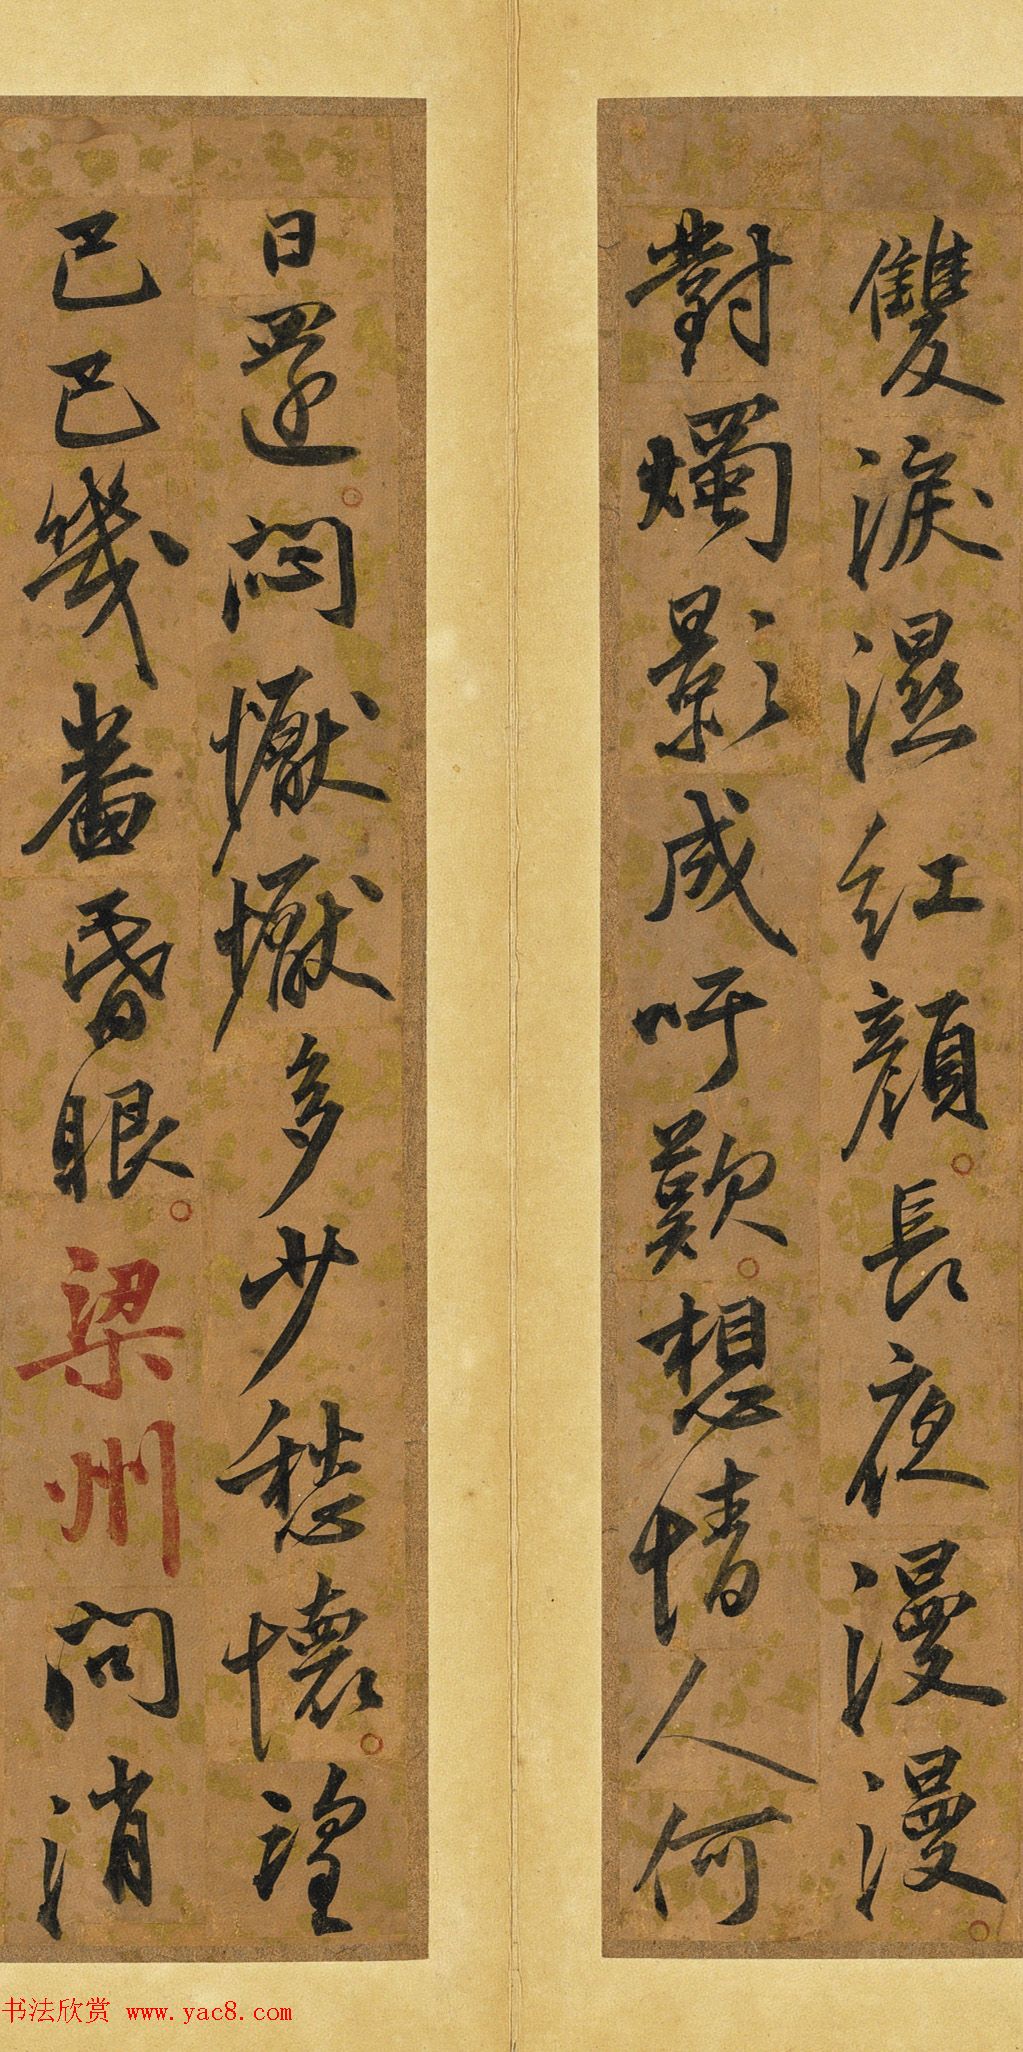 雙淚濕紅顏長夜漫漫
對燭影成吁歎想情人何
日還悶懨懨多少愁懷望
巴巴幾番昏眼梁州問消
书法欣赏 www.yac8.com